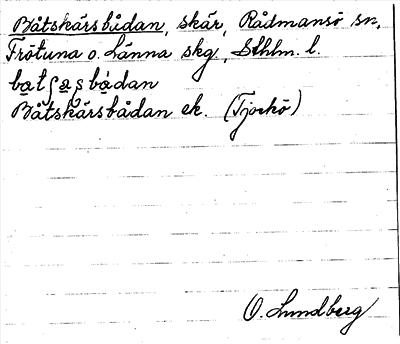 Båtskärsbådan, skär, Rådmansö sn,
Frötuna o. Länna skg, Sthlm. l.
ba̱tʃa̱ʂbå̀dan
Båtskärsbådan ek. (Tjockö)
O. Lundberg